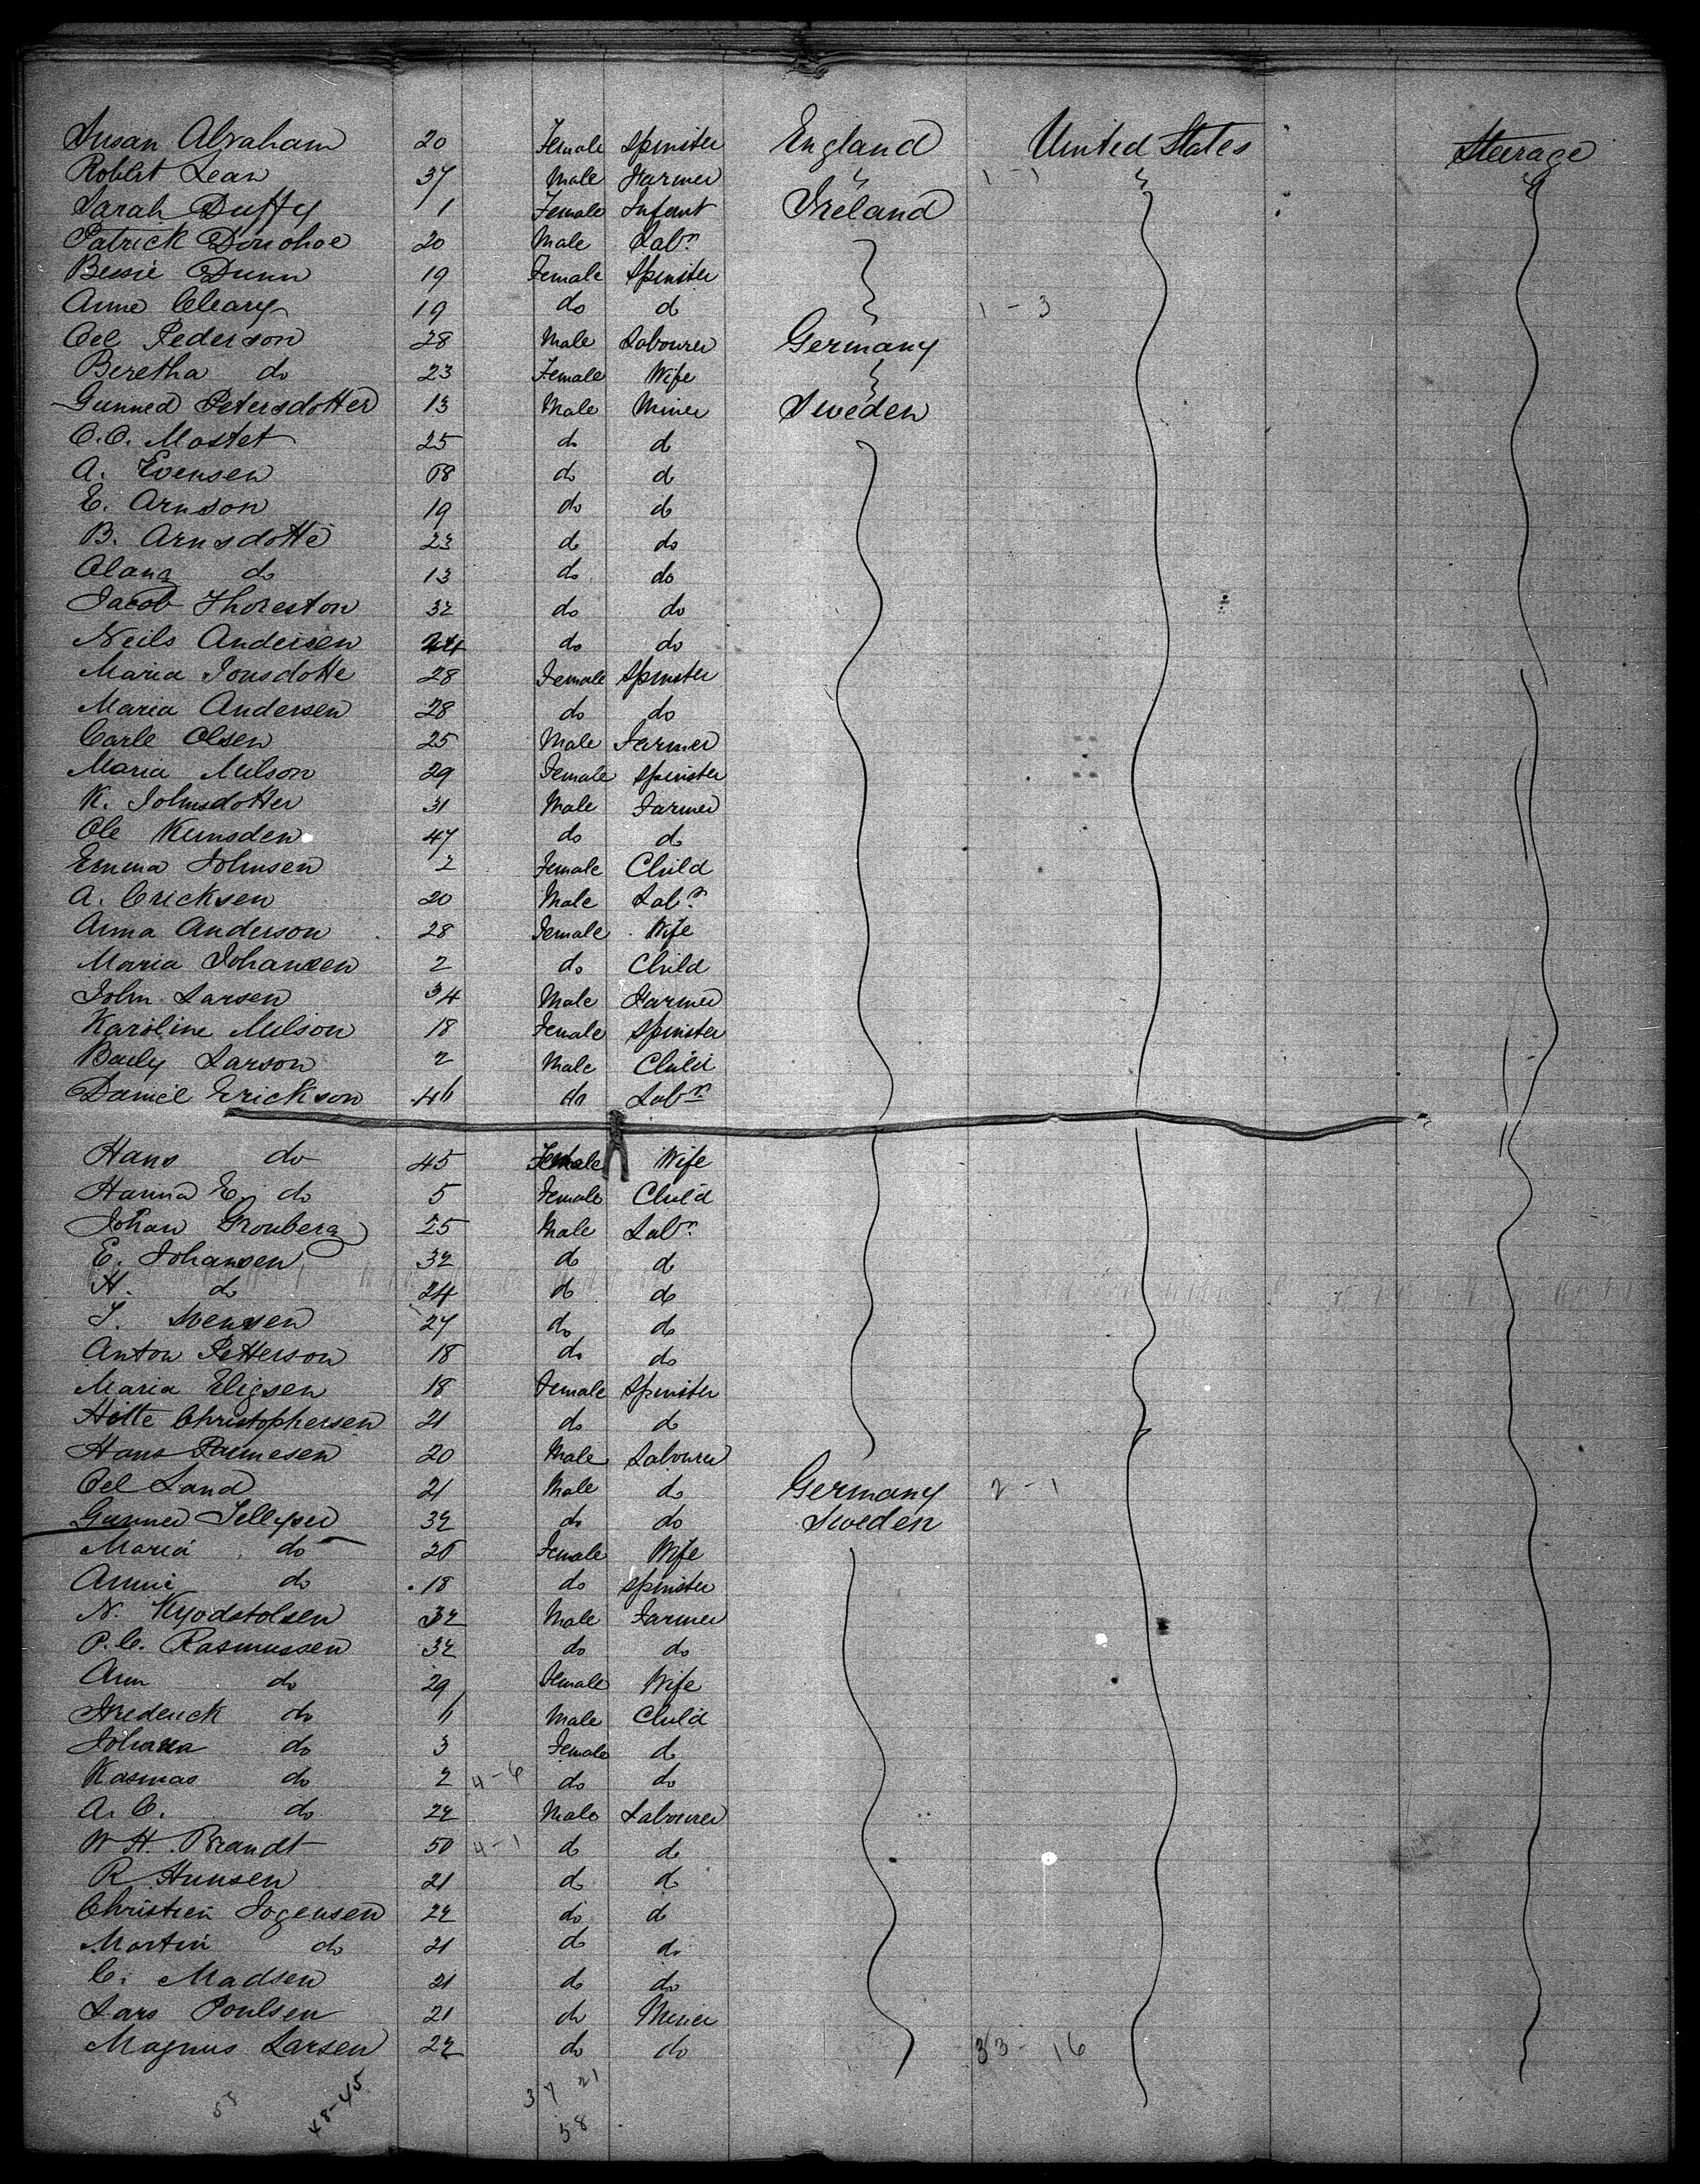 Susan Abraham 20 Female Spinster England United States Steerage
Robert Lean 37 Male Farmer " 1 - 1 " "
Sarah Duffy 1 Female Infant Ireland
Patrick Donohoe 20 Male Labr
Bessie Dunn 19 Female Spinster
Anne Cleary 19 do do 1 - 3
Oel Pederson 28 Male Labourer Germany
Beretha do 23 Female Wife
Gunned Petersdotter 13 Male Miner Sweden
O.O. Mostet 25 do do
A. Evensen 18 do do
E. Arnson 19 do do
B. Arnsdotte 23 do do
Olang do 13 do do
Jacob Thoreston 32 do do
Neils Andersen 24 do do
Maria Jonsdotte 28 Female Spinster
Maria Andersen 28 do do
Carle Olsen 25 Male Farmer
Maria Nilson 29 Female Spinster
K. Johnsdotter 31 Male Farmer
Ole Kunsden 47 do do
Emma Johnsen 2 Female Child
A. Ericksen 20 Male Labr
Anna Anderson 28 Female Wife
Maria Johansen 2 do Child
John Larsen 34 Male Farmer
Karoline Nilson 18 Female Spinster
Baely Larson 2 Male Child
Daniel Erickson 46 do Labr
Hans do 45 Female Wife
Hanna E. do 5 Female Child
Johan Gronberg 25 Male Labr
E. Johansen 32 do do
H. do 24 do do
J. Svensen 27 do do
Anton Petterson 18 do do
Maria Eligsen 18 Female Spinster
Hitte Christophersen 21 do do
Hans 20 Male Labourer
Oel Land 21 Male do Germany 2 - 1
Gunner 32 do do Sweden
Maria do 26 Female Wife
Annie do 18 do Spinster
N. Kyodstolsen 32 Male Farmer
P.C. Rasmussen 32 do do
Ann do 29 Female Wife
Frederick do 6 Male Child
Johana do 3 Female do
Rasmas do 2 4-6 do do
A.C. do 22 Male Labourer
W H. Brandt 50 4-1 do do
R Hunsen 21 do do
Christien Jogensen 22 do do
Martin do 21 do do
C. Madsen 21 do do
Lars Poulsen 21 do Miner
Magnus Larsen 22 do do 33 - 16
58 48-45 37 21
58